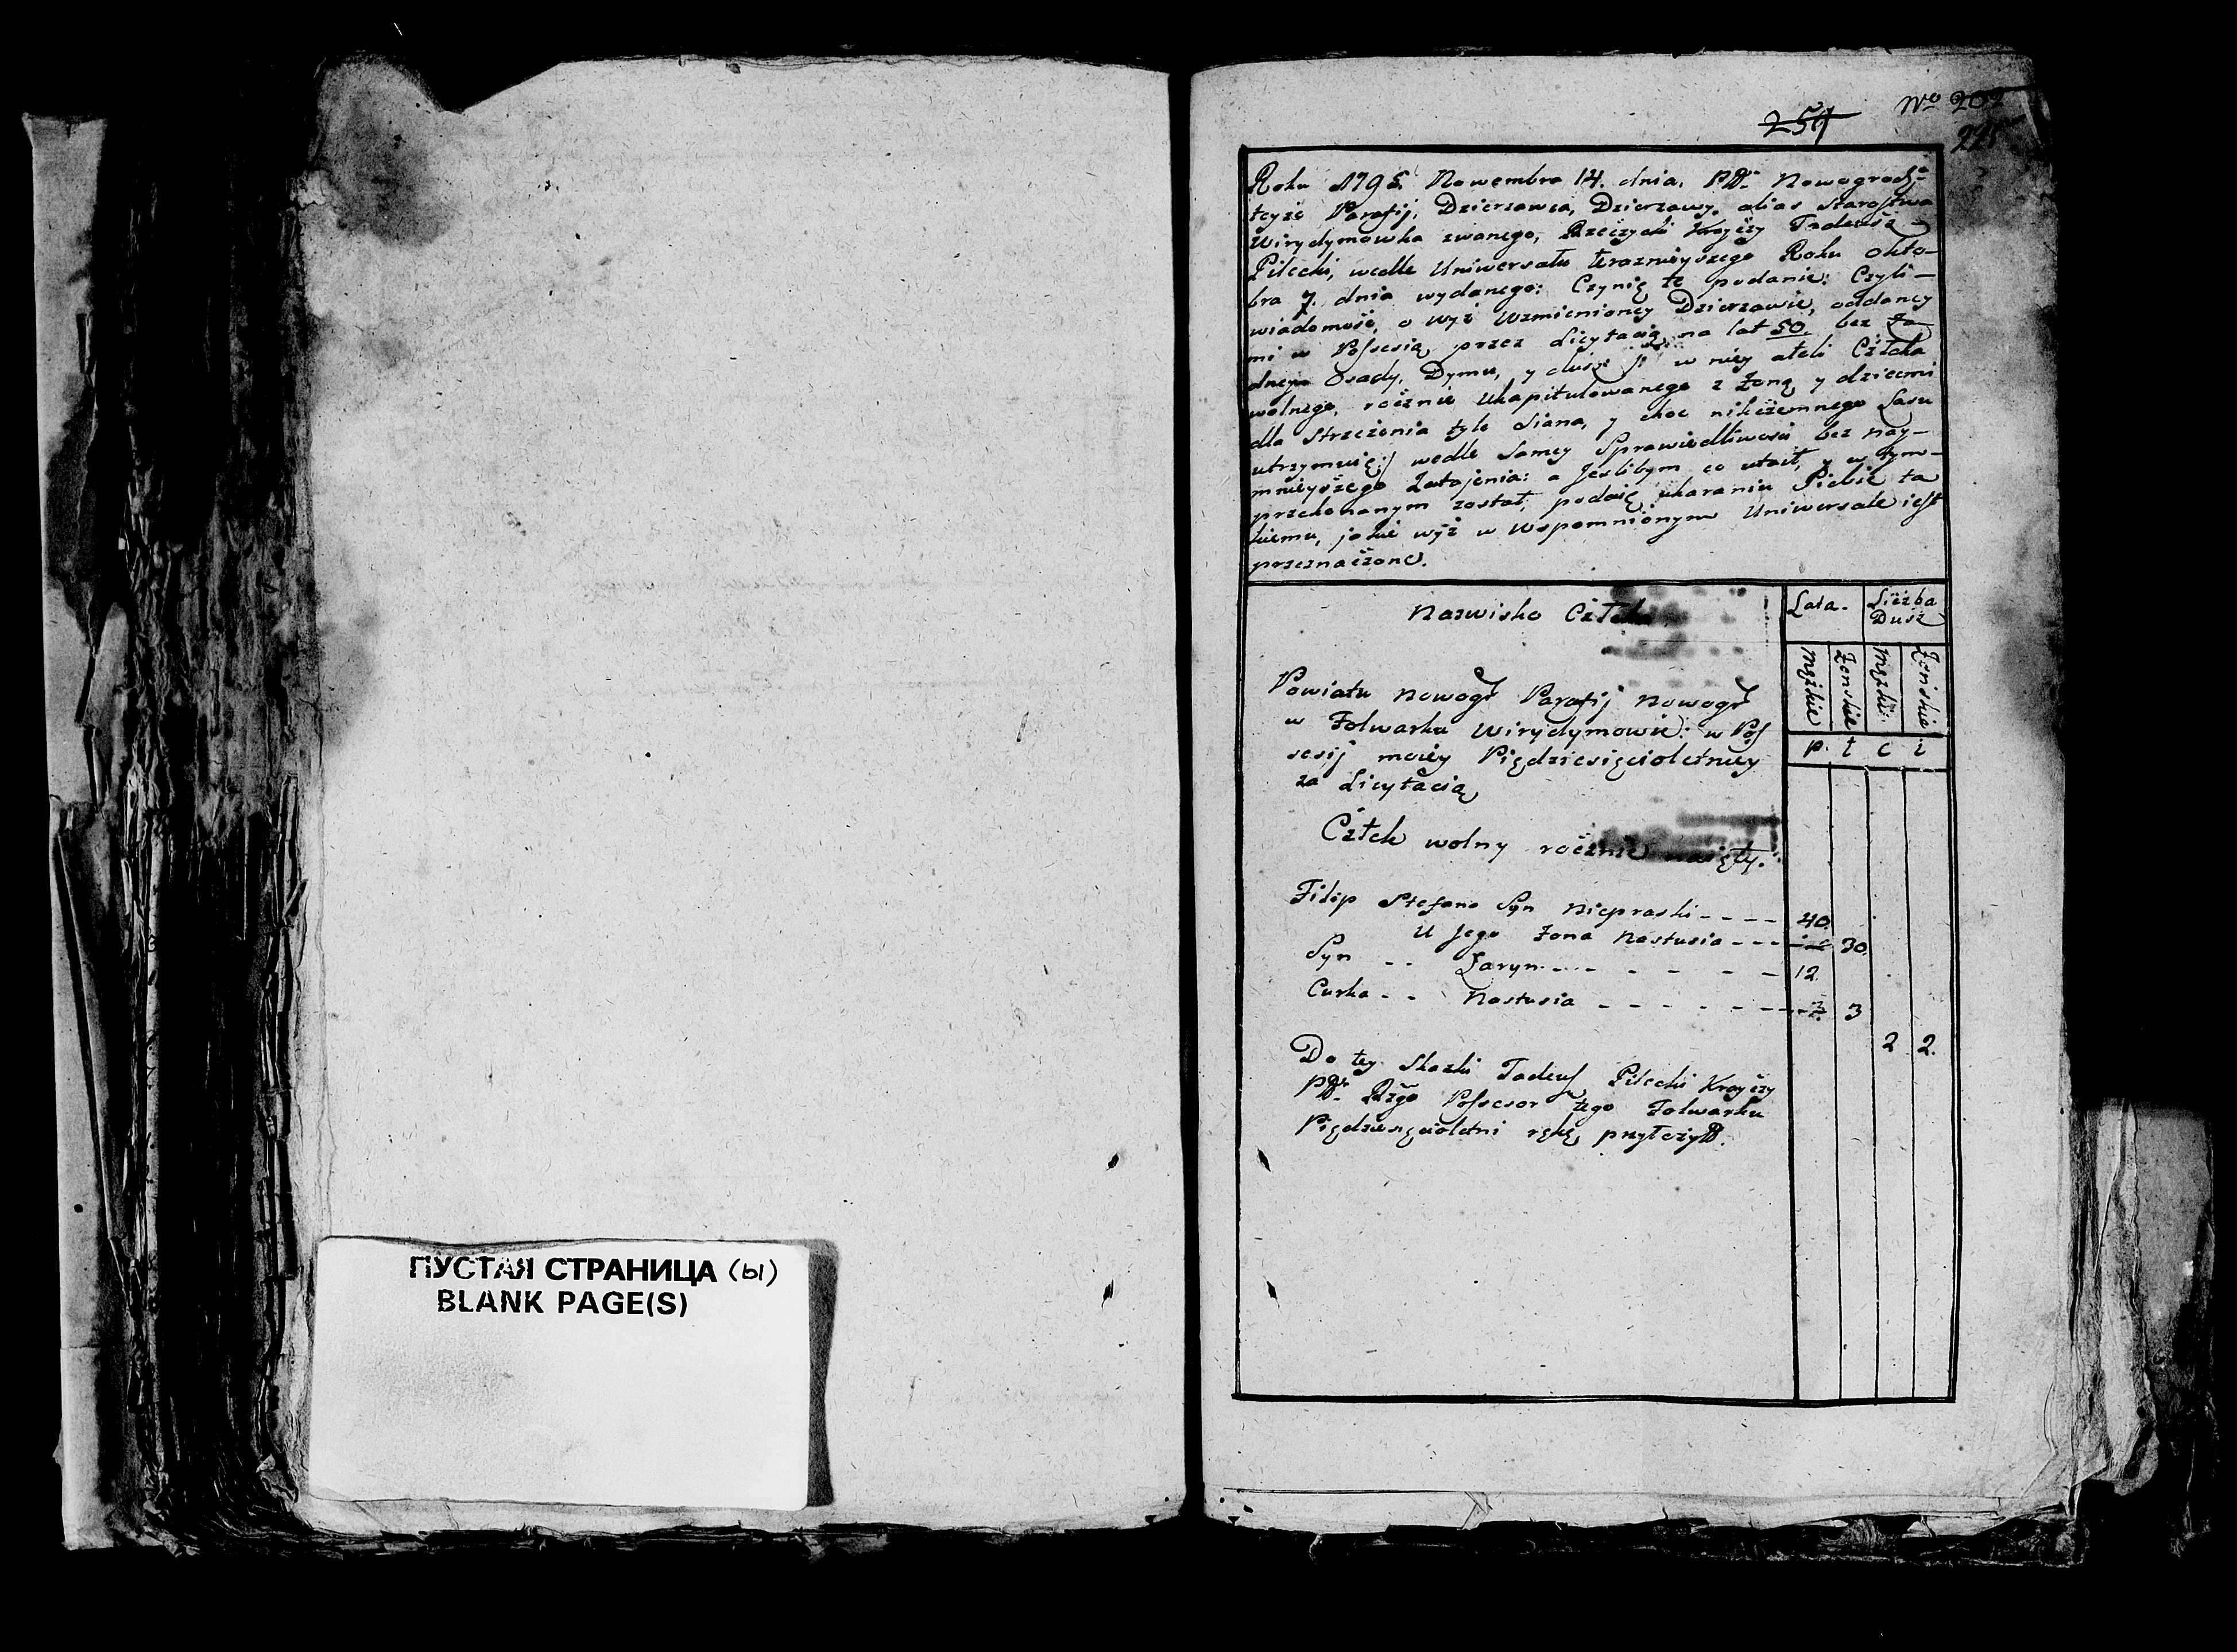 ПУСТАЯ СТРАНИЦА (ы)
BLANK PAGE(S)
254 No 202
225
Roku 1795 Nowembra 14. dnia. Nowogrodz.
teyże Parafij, Dzierzawca, Dzierzawy, alias Starostwa
Wirydymowka zwanego, Rzeczycki Krayczy Tadeusz
Pilecki, wedle Uniwersału teraznieyszego Roku okto-
bra 7. dnia wydanego: Czynię te podanie: Czyli
wiadomość, o wyż wzmienioney Dzierzawie, oddaney
mi w Possesią, przez Licytacią, na lat 50. bez ża-
dney Osady, Dymu, y duszy w niey Człeka
wolnego, rocznie Ukapitulowanego z Żoną, y dziecmi
dla Strzeżenia tyle Siana, y choc nikczemnego Lasu
utrzymuię:/ wedle Samey Sprawiedliwosci bez nay-
mnieyszego Zatajenia: a Jeslibym co utaił, y w tym
przekonanym został, podaię ukaraniu Siebie ta
kiemu, jakie wyż w Wspomnionym Uniwersale iest
przeznaczone.
Nazwisko Człeka Lata. Liczba
Dusz
Męzkie Zenskie Męzkie: Zenskie
p. t c i
Powiatu Nowogr Parafij Nowogr
w Folwarku Wirydymowce: w Pos
sesij moiey Pięcdziesięcioletniey
za Licytacią
Człek wolny rocznie naięty.
Filip Stefana Syn Niepraski - - - - 40.
U Jego Żona Nastusia - - - 30.
Syn - - Laryn - - - - - - 12.
Curka - - Nastusia - - - - - - 3
2 2.
Do tey Skazki Tadeusz Pilecki Krayczy
Rzgo Possesor tego Folwarku
Pięcdziesięcioletni rękę przyłożył.